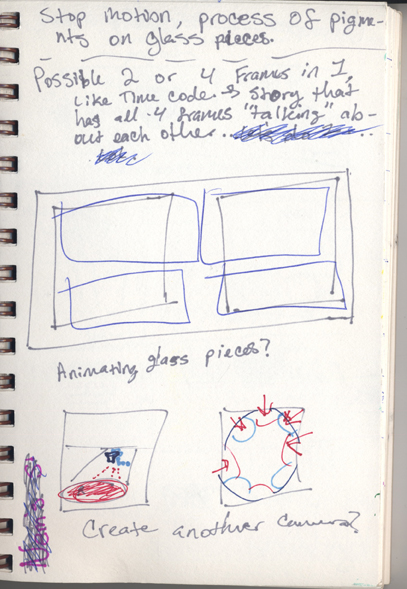 Stop motion, process of pigme-
nts on glass pieces.
Possible 2 or 4 Frames in 1,
Like Time code → Story that
has all 4 frames "talking" ab-
out each other...
Animating glass pieces?
Create another camera?